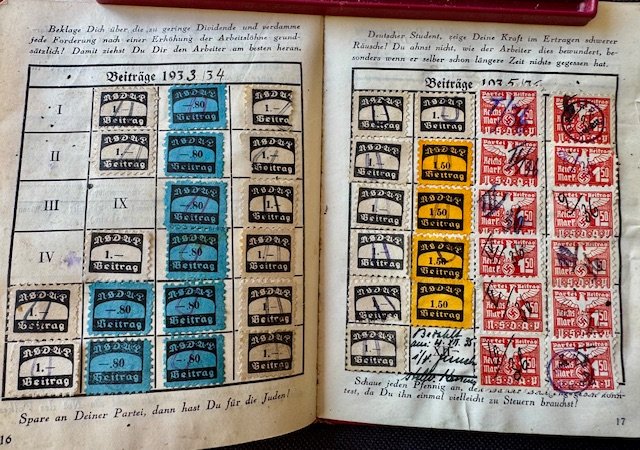 Beklage Dich über die zu geringe Dividende und verdamme
jede Forderung nach einer Erhöhung der Arbeitslöhne grund-
sätzlich! Damit ziehst Du Dir den Arbeiter am besten heran.
Beiträge 1933/34
I
NSDAP 1.— Beitrag
NSDAP —.80 Beitrag
NSDAP 1.— Beitrag
II
NSDAP 1.— Beitrag
NSDAP —.80 Beitrag
NSDAP 1.— Beitrag
III
IX
NSDAP —.80 Beitrag
NSDAP 1.— Beitrag
IV
NSDAP 1.— Beitrag
NSDAP —.80 Beitrag
NSDAP 1.— Beitrag
NSDAP 1.— Beitrag
NSDAP —.80 Beitrag
NSDAP —.80 Beitrag
NSDAP 1.— Beitrag
NSDAP 1.— Beitrag
NSDAP —.80 Beitrag
NSDAP —.80 Beitrag
NSDAP 1.— Beitrag
Spare an Deiner Partei, dann hast Du für die Juden!
16
Deutscher Student, zeige Deine Kraft im Ertragen schwerer
Räusche! Du ahnst nicht, wie der Arbeiter dies bewundert, be-
sonders wenn er selber schon längere Zeit nichts gegessen hat.
Beiträge 1935/36
NSDAP 1.— Beitrag
NSDAP 1.— Beitrag
Partei Beitrag Reichs Mark 1.50 N·S·D·A·P
Partei Beitrag Reichs Mark 1.50 N·S·D·A·P
NSDAP 1.— Beitrag
NSDAP 1.50 Beitrag
Partei Beitrag Reichs Mark 1.50 N·S·D·A·P
Partei Beitrag Reichs Mark 1.50 N·S·D·A·P
NSDAP 1.— Beitrag
NSDAP 1.50 Beitrag
Partei Beitrag Reichs Mark 1.50 N·S·D·A·P
Partei Beitrag Reichs Mark 1.50 N·S·D·A·P
NSDAP 1.— Beitrag
NSDAP 1.50 Beitrag
Partei Beitrag Reichs Mark 1.50 N·S·D·A·P
Partei Beitrag Reichs Mark 1.50 N·S·D·A·P
NSDAP 1.— Beitrag
NSDAP 1.50 Beitrag
Partei Beitrag Reichs Mark 1.50 N·S·D·A·P
Partei Beitrag Reichs Mark 1.50 N·S·D·A·P
NSDAP 1.— Beitrag
Bezahlt
Partei Beitrag Reichs Mark 1.50 N·S·D·A·P
Partei Beitrag Reichs Mark 1.50 N·S·D·A·P
Schaue jeden Pfennig an,
test, da Du ihn einmal vielleicht zu Steuern brauchst!
17